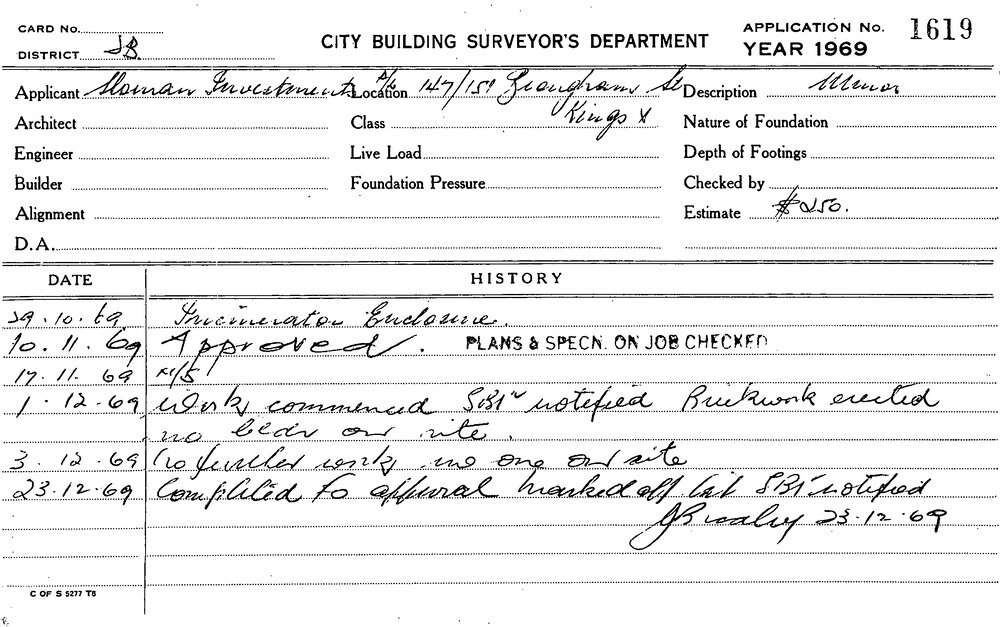 CARD No.
DISTRICT JB.
CITY BUILDING SURVEYOR'S DEPARTMENT
APPLICATION No. 1619
YEAR 1969
Applicant Investments Location 147/151 St Description Minor
Kings X
Architect Class Nature of Foundation
Engineer Live Load Depth of Footings
Builder Foundation Pressure Checked by
Alignment Estimate $250.
D.A.
DATE HISTORY
29.10.69 Incinerator Enclosure.
10.11.69 Approved. PLANS & SPECN. ON JOB CHECKED
17.11.69 N/S
1.12.69 Work commenced notified Brickwork erected
no on site.
3.12.69 No further work, no one on site
23.12.69 Completed to approval marked off notified
23.12.69
C OF S 5277 T6